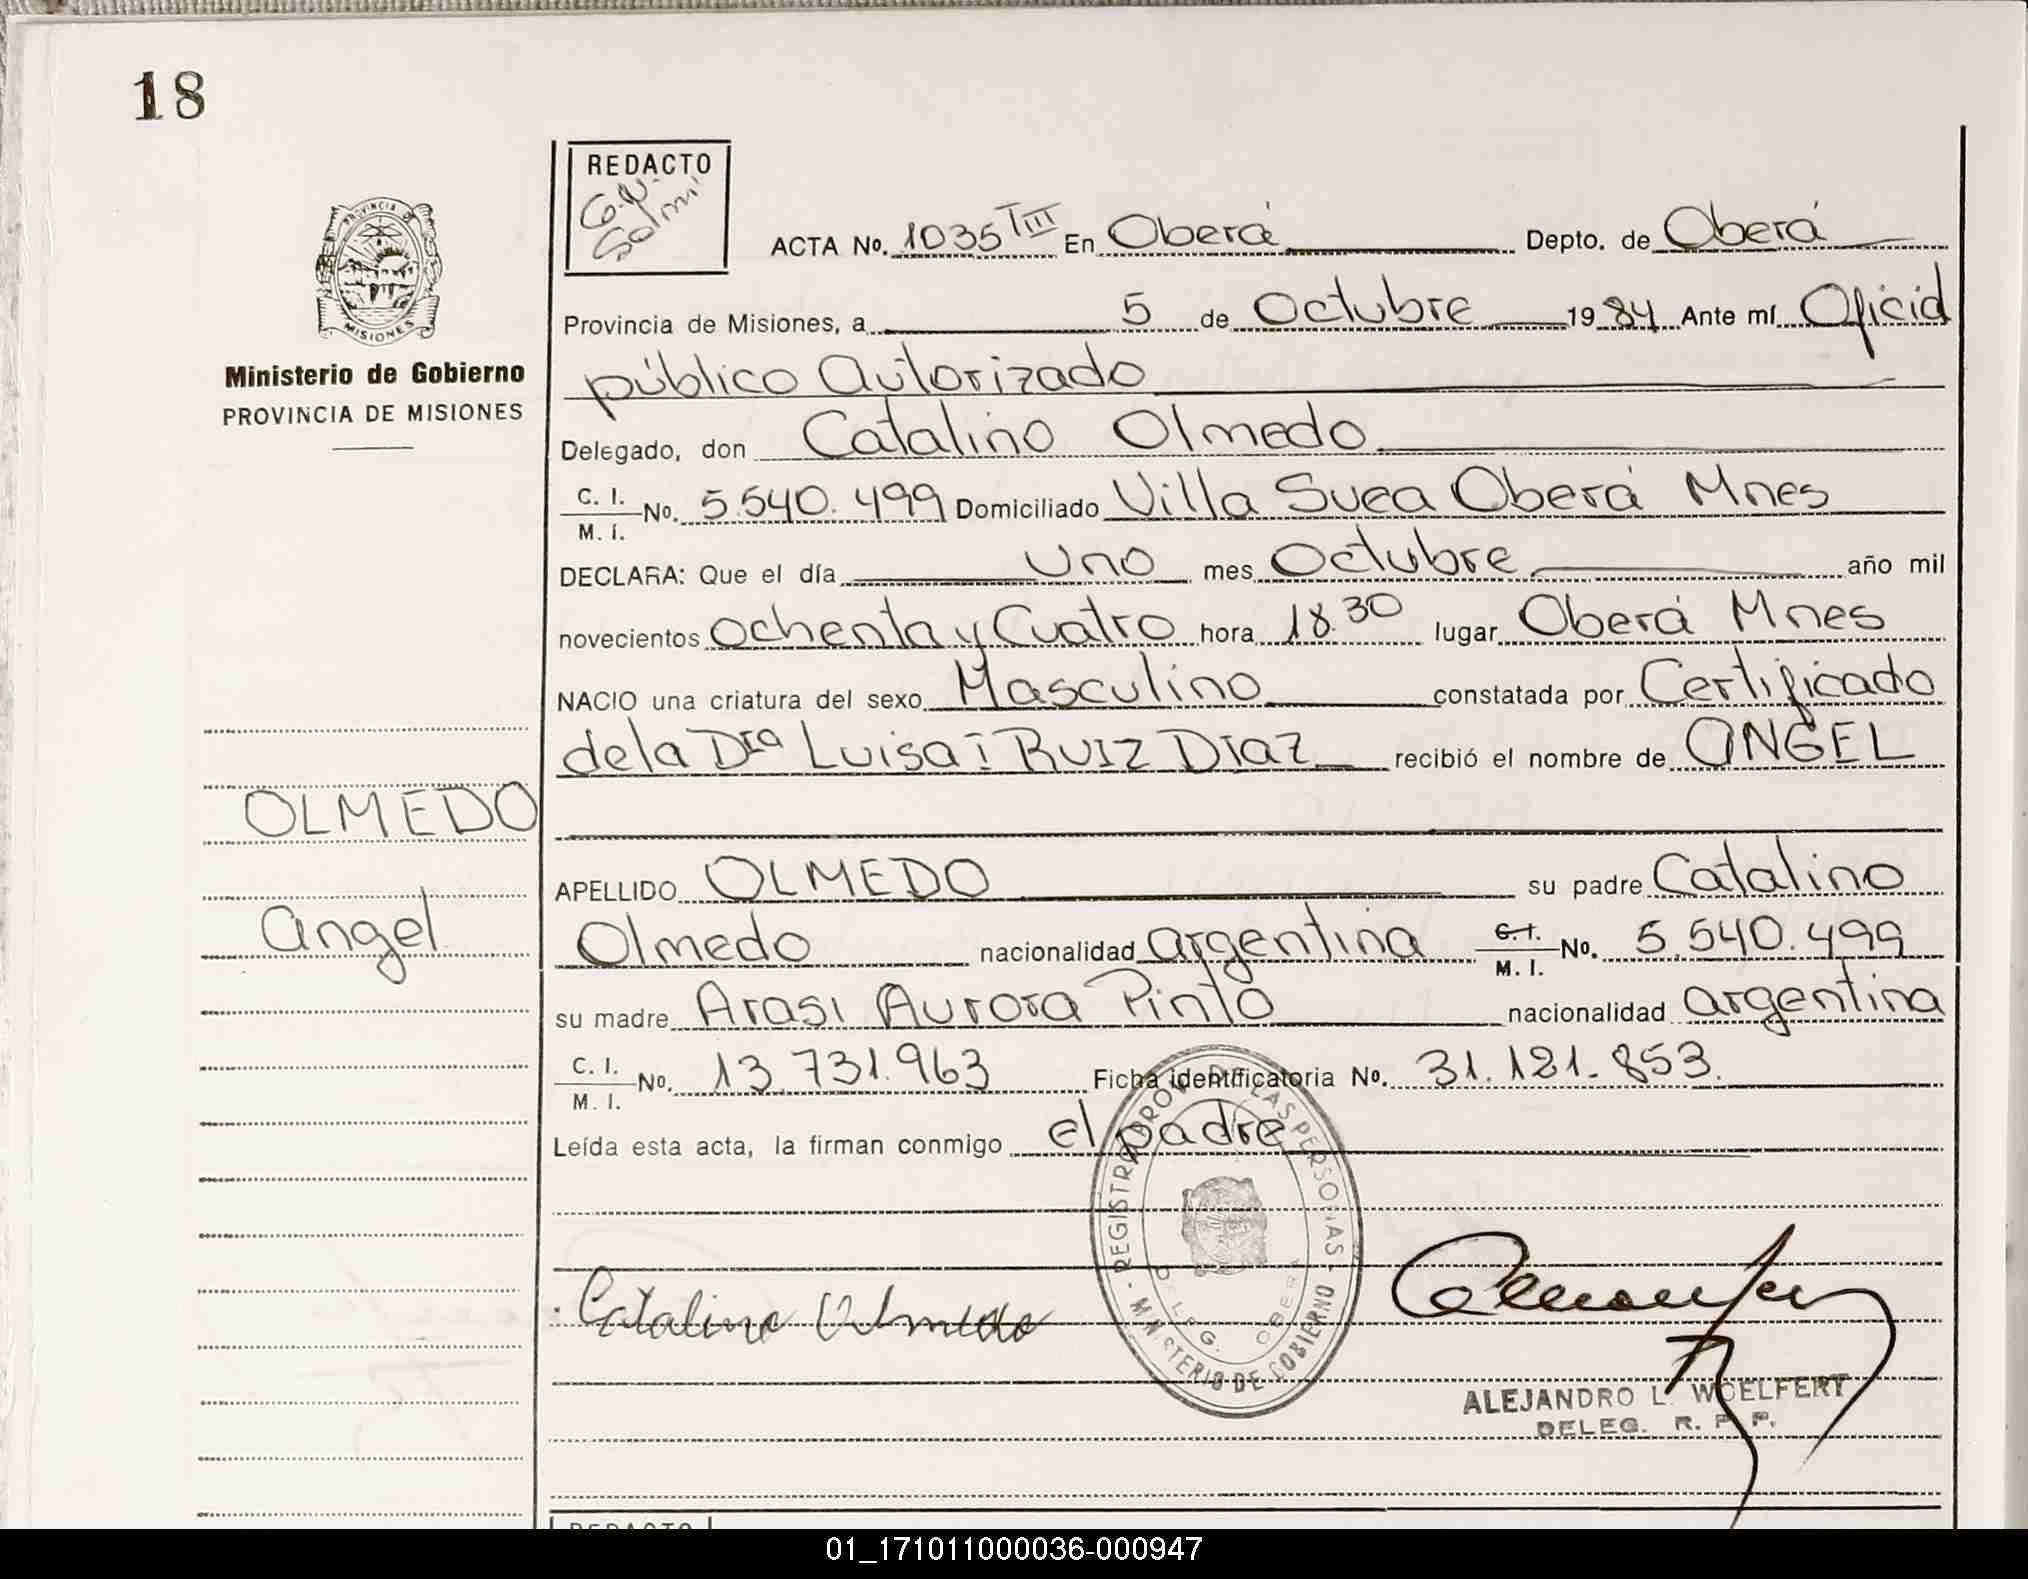 18
REDACTO
G.N.
PROVINCIA DE
MISIONES
Ministerio de Gobierno
PROVINCIA DE MISIONES
ACTA No. 1035 TIII En Oberá Depto. de Oberá
Provincia de Misiones, a 5 de Octubre 1984 Ante mí Oficial
público Autorizado
Delegado, don Catalino Olmedo
C. I.
M. I. No. 5.540.499 Domiciliado Villa Suea Oberá Mnes
DECLARA: Que el día Uno mes Octubre año mil
novecientos Ochenta y Cuatro hora 18.30 lugar Oberá Mnes
NACIO una criatura del sexo Masculino constatada por Certificado
de la Dra Luisa I RUIZ DIAZ recibió el nombre de ANGEL
OLMEDO
Angel
APELLIDO OLMEDO su padre Catalino
Olmedo nacionalidad argentina C. I.
M. I. No. 5.540.499
su madre Arasi Aurora Pinto nacionalidad argentina
C. I.
M. I. No. 13.731.963 Ficha identificatoria No. 31.121.853.
Leída esta acta, la firman conmigo el padre
REGISTRO PROV. DE LAS PERSONAS
MINISTERIO DE GOBIERNO
DELEG. OBERA
Catalino Olmedo
ALEJANDRO L. WOELFERT
DELEG. R. P. P.
REDACTO
01_171011000036-000947